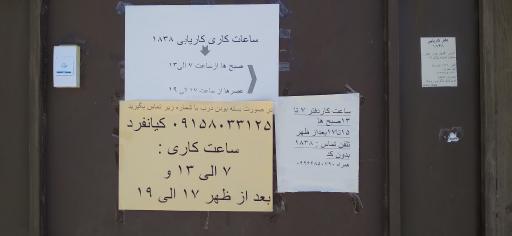 ساعات کاری کاریابی ۱۸۳۸
صبح ها از ساعت ۷ الی ۱۳
عصرها از ساعت ۱۷ الی ۱۹
در صورت بسته بودن درب با شماره زیر تماس بگیرید
۰۹۱۵۸۰۳۳۱۲۵ کیانفرد
ساعت کاری :
۷ الی ۱۳ و
بعد از ظهر ۱۷ الی ۱۹
ساعت کاردفتر ۷ تا
۱۳صبح ها
۱۵تا۱۷بعداز ظهر
تلفن تماس : ۱۸۳۸
بدون کد
همراه
دفتر کاریابی
۱۸۳۸